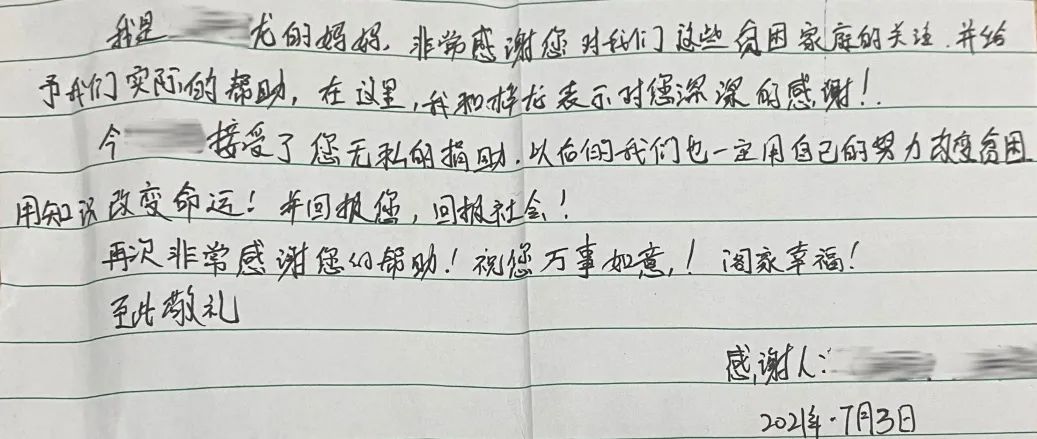 我是 龙的妈妈，非常感谢您对我们这些贫困家庭的关注.并给
予我们实际的帮助，在这里，我和梓龙表示对您深深的感谢！.
今 接受了您无私的捐助.以后的我们也一定用自己的努力改变贫困
用知识改变命运！并回报您，回报社会！
再次非常感谢您的帮助！祝您万事如意,！阖家幸福！
至此敬礼
感谢人：
2021年·7月3日